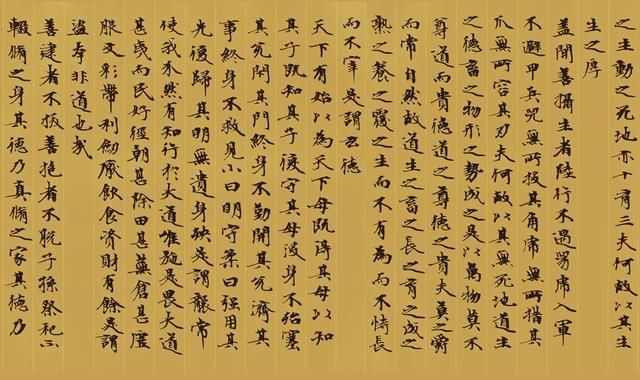 之生動之死地亦十有三夫何故以其生
生之厚
蓋聞善攝生者陸行不遇兕虎入軍
不避甲兵兕無所投其角虎無所措其
爪無所容其刃夫何故以其無死地道生
之德畜之物形之勢成之是以萬物莫不
尊道而貴德道之尊德之貴夫莫之爵
而常自然故道生之畜之長之育之成之
熟之養之覆之生而不有為而不恃長
而不宰是謂玄德
天下有始以為天下母既得其母以知
其子既知其子復守其母沒身不殆塞
其兌閉其門終身不勤開其兌濟其
事終身不救見小曰明守柔曰强用其
光復歸其明無遺身殃是謂襲常
使我介然有知行於大道惟施是畏大道
甚夷而民好徑朝甚除田甚蕪倉甚虛
服文彩帶利劍厭飲食資財有餘是謂
盜夸非道也哉
善建者不拔善抱者不脫子孫祭祀不
輟脩之身其德乃真脩之家其德乃